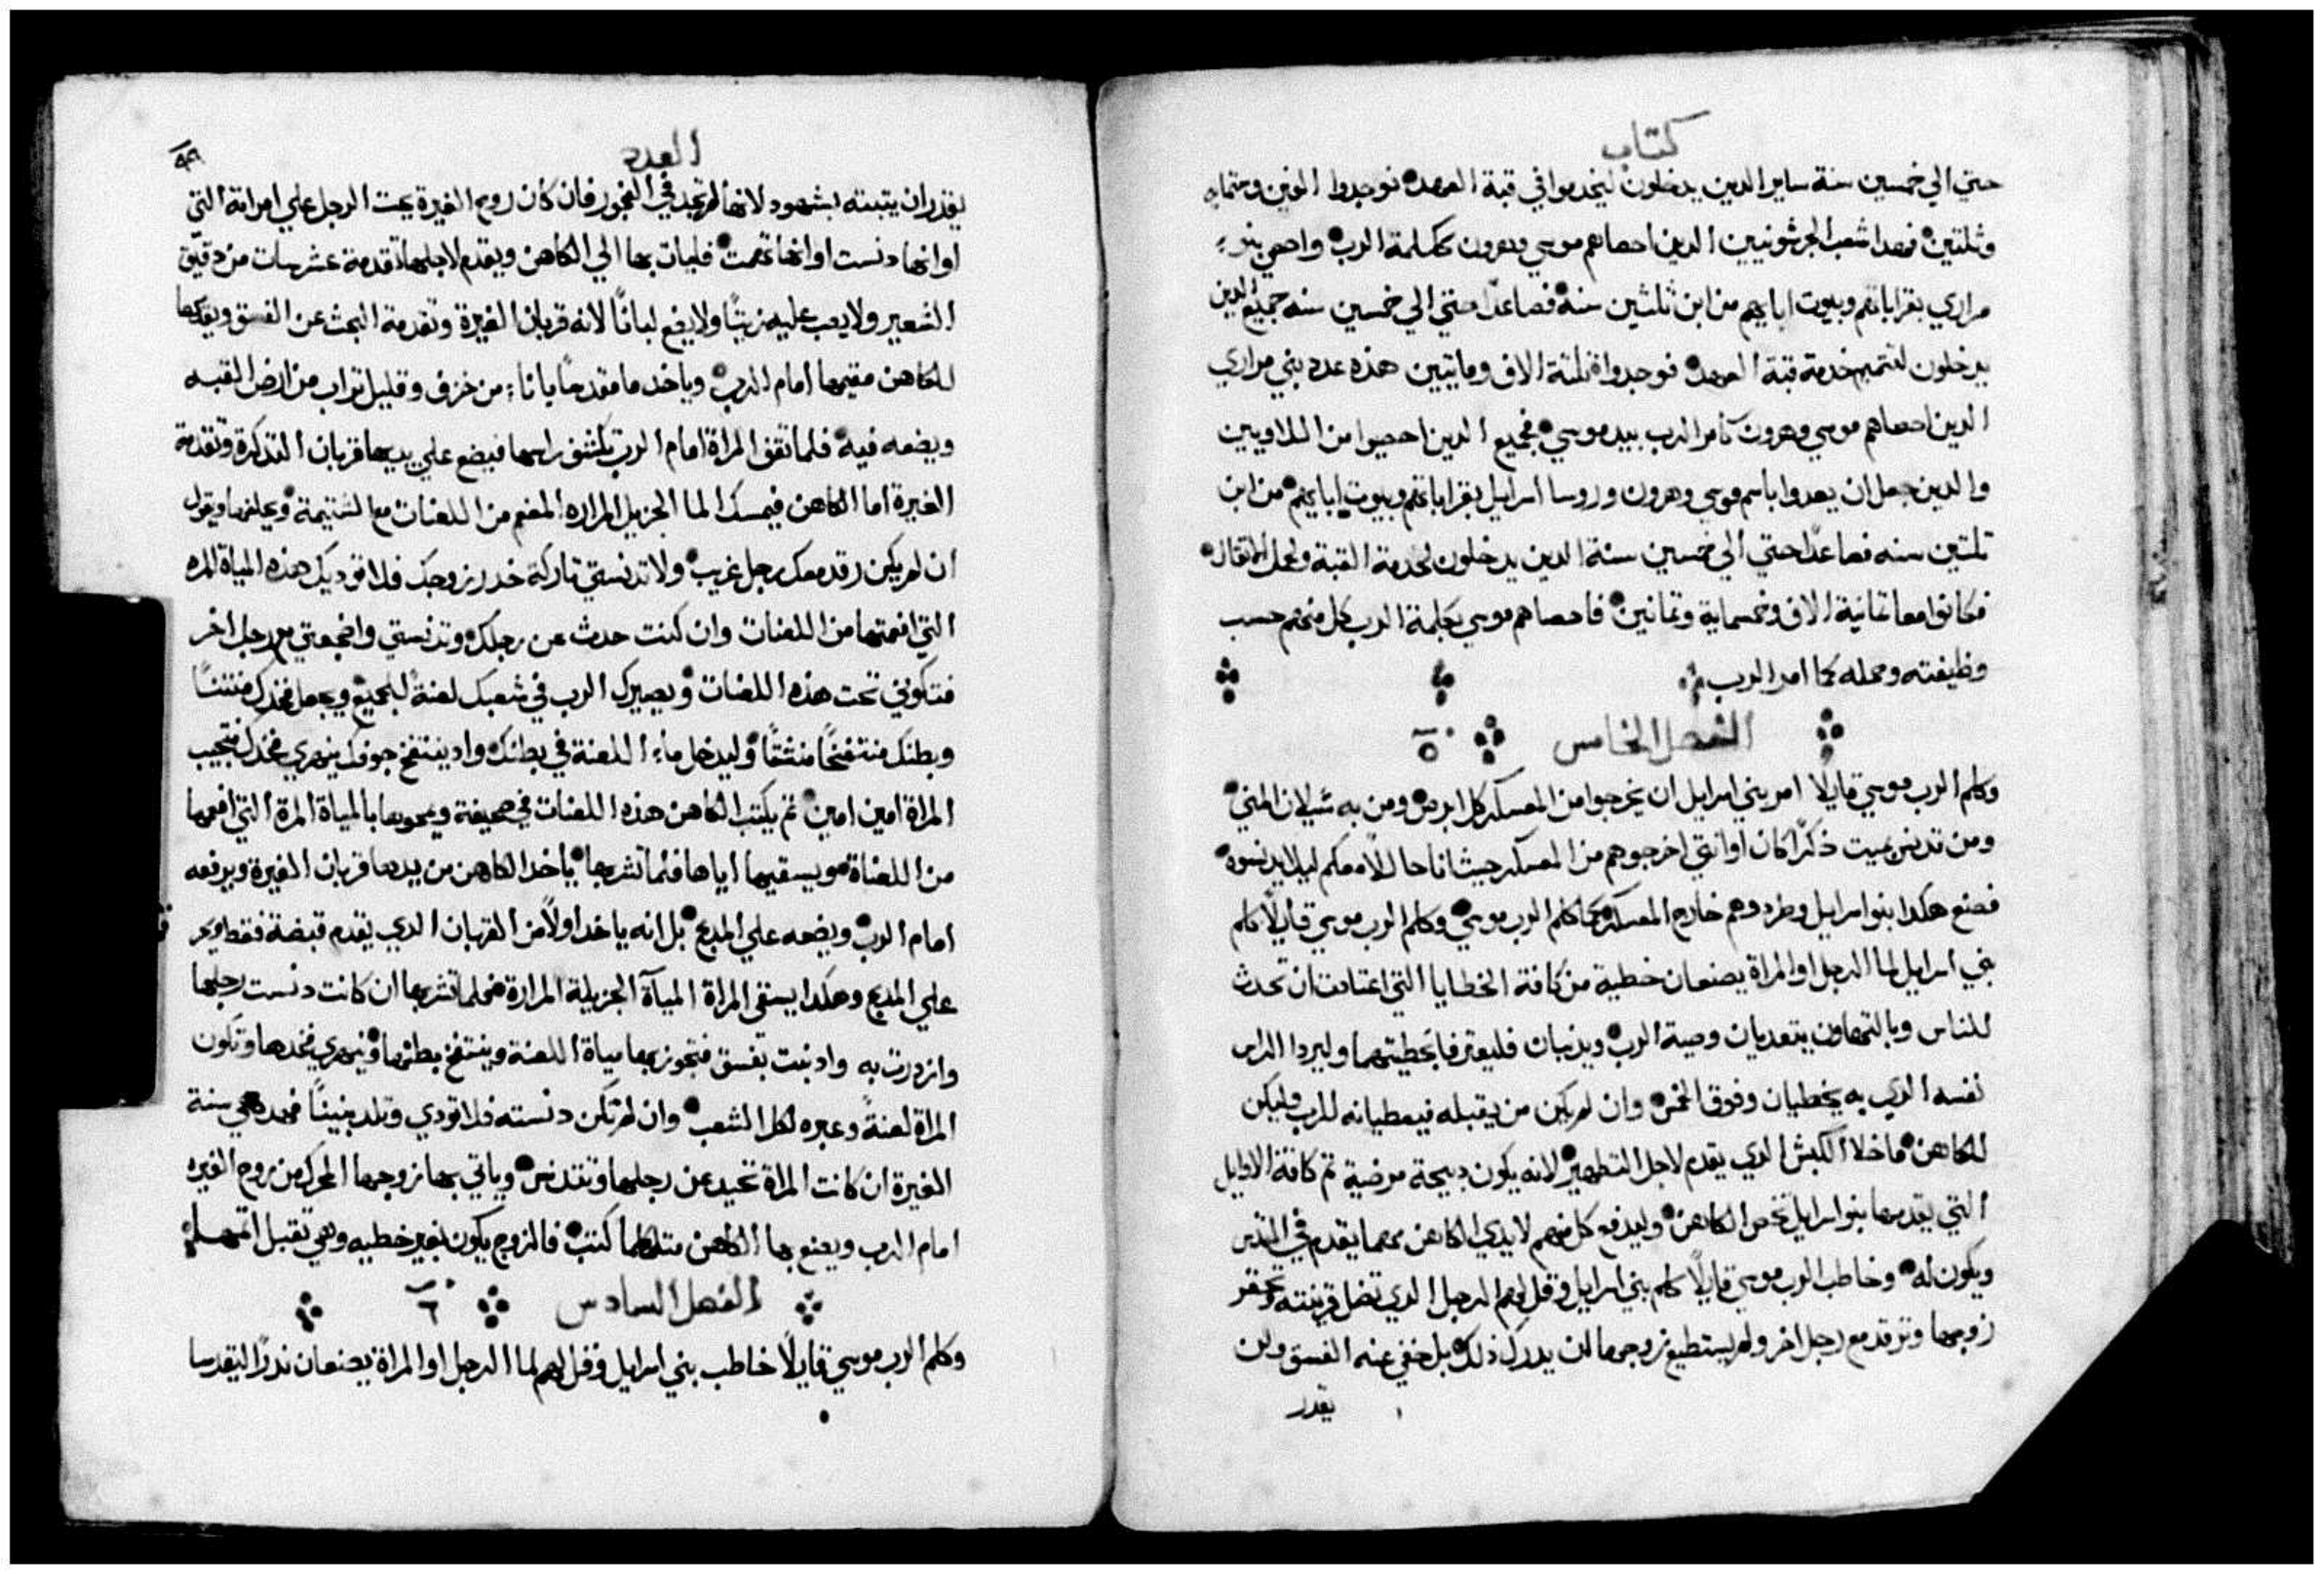 كتاب
حتي الي خمسين سنة ساير الدين يدخلون ليخدموا في قبة العهد فوجدوا الفين وستماية
وثلتين فهدا شعب الجرشونيين الدين احصاهم موسي وهرون ككلمة الرب واحصي بنو
مراري بقراباتهم وبيوت ابايهم من ابن ثلثين سنة فصاعدًا حتي الي خمسين سنه جميع الدين
يدخلون لتتميم خدمة قبة العهد فوجدوا ثلثة الاف وماتيين هذه عدد بني مراري
الدين احصاهم موسي وهرون كامر الرب بيد موسي فجميع الدين احصيوا من اللاويين
والدين جعل ان يعدوا باسم موسي وهرون وروسا اسراييل بقراباتهم وبيوت ابايهم من ابن
تلتين سنه فصاعدًا حتي الي خمسين سنة الدين يدخلون لخدمة القبة ولحمل الاتقال
فكانوا معا تمانية الاف وخمسماية وتمانين فاحصاهم موسي بكلمة الرب كل منهم حسب
وظيفته وحمله كما امر الرب
الفصل الخامس ٥
وكلم الرب موسي قايلًا امر بني اسراييل ان يخرجوا من المعسكر كل ابرص ومن به سيلان المني
ومن تدنس بميت ذكرًا كان او انتي اخرجوهم من المعسكر حيث انا حاللًا معكم ليلا يدنسوه
فصنع هكدا بنوا اسراييل وطردوهم خارج المعسكر كما كلم الرب موسي وكلم الرب موسي قايلًا كلم
بني اسراييل لما الرجل او المراة يصنعان خطية من كافة الخطايا التي اعتادت ان تحدث
للناس وبالتهاون يتعديان وصية الرب ويدنبان فليعترفا بخطيتهما وليردا الراس
نفسه الدي به يخطيان وفوق الخمس وان لم يكن من يقبله فيعطيانه للرب وليكن
للكاهن ماخلا الكبش الدي يقدم لاجل التطهير لانه يكون دبيحة مرضية تم كافة الاوايل
التي يقدمها بنوا اسراييل تخص الكاهن وليدفع كل منهم لايدي الكاهن مهما يقدم في القدس
ويكون له وخاطب الرب موسي قايلًا كلم بني اسراييل وقل لهم الرجل الدي تضل قرينته وتحتقر
زوجها وترقد مع رجل اخر ولم يستطيع زوجها ان يدرك ذلك بل خفي عنه الفسق ولن
يقدر
العدد
٤٩
يقدر ان يتبته بشهود لانها لم تجد في الفجور فان كان روح الغيرة يحت الرجل علي امراته التي
اوانها دنست اوانها تهمت فليات بها الي الكاهن ويقدم لاجلها تقدمة عشر سات من دقيق
الشعير ولا يصب عليه زيتًا ولا يضع لبانًا لانه قربان الغيرة وتقدمة البحث عن الفسق ويقدمها
للكاهن مقيمها امام الرب وياخد ما مقدسًا باناء من خزف وقليل تراب من ارض القبه
ويضعه فيه فلما تقف المراة امام الرب يكشف راسها فيضع علي يديها قربان التدكرة وتقدمة
الغيرة اما الكاهن فيمسك الما الجزيل المراره المفعم من اللعنات مع الشتيمة ويحلفها ويقول
ان لم يكن رقد معك رجل غريب ولا تدنستي تاركة خدر زوجك فلا توديك هذه المياة المره
التي افعمتها من اللعنات وان كنت حدت عن رجلك وتدنستي واضجعتي مع رجل اخر
فتكوني تحت هذه اللعنات ويصيرك الرب في شعبك لعنة للجميع ويجعل فخدك منتنًا
وبطنك منتفخًا منشقًا وليدخل ماء اللعنة في بطنك واد ينتفخ جوفك ينهري فخدك فتجيب
المراة امين امين تم يكتب الكاهن هذه اللعنات في صحيفة ويمحوها بالمياة المرة التي افعمها
من اللعناة ويسقيها اياها فلما تشربها ياخد الكاهن من يدها قربان الغيرة ويرفعه
امام الرب ويضعه علي المدبح بل انه ياخد اولًا من القربان الدي يقدم قبضة فقط ويحر
علي المدبح وهكدا يسقي المراة المياة الجزيلة المرارة فحلما تشربها ان كانت دنست رجلها
وازدرت به وادنبت بفسق فتجوز بها مياة اللعنة وينتفخ بطنها وينهري فخدها وتكون
المراة لعنةً وعبره لكل الشعب وان لم تكن دنسته فلا تودي وتلد بنينًا فهده هي سنة
الغيرة ان كانت المراة تحيد عن رجلها وتتدنس وياتي بها زوجها المحرك من روح الغيره
امام الرب ويصنع بها الكاهن متلما كتب فالزوج يكون بغير خطيه وهي تقبل اتمها
الفصل السادس ٦
وكلم الرب موسي قايلًا خاطب بني اسراييل وقل لهم لما الرجل او المراة يصنعان ندرًا ليتقدسا